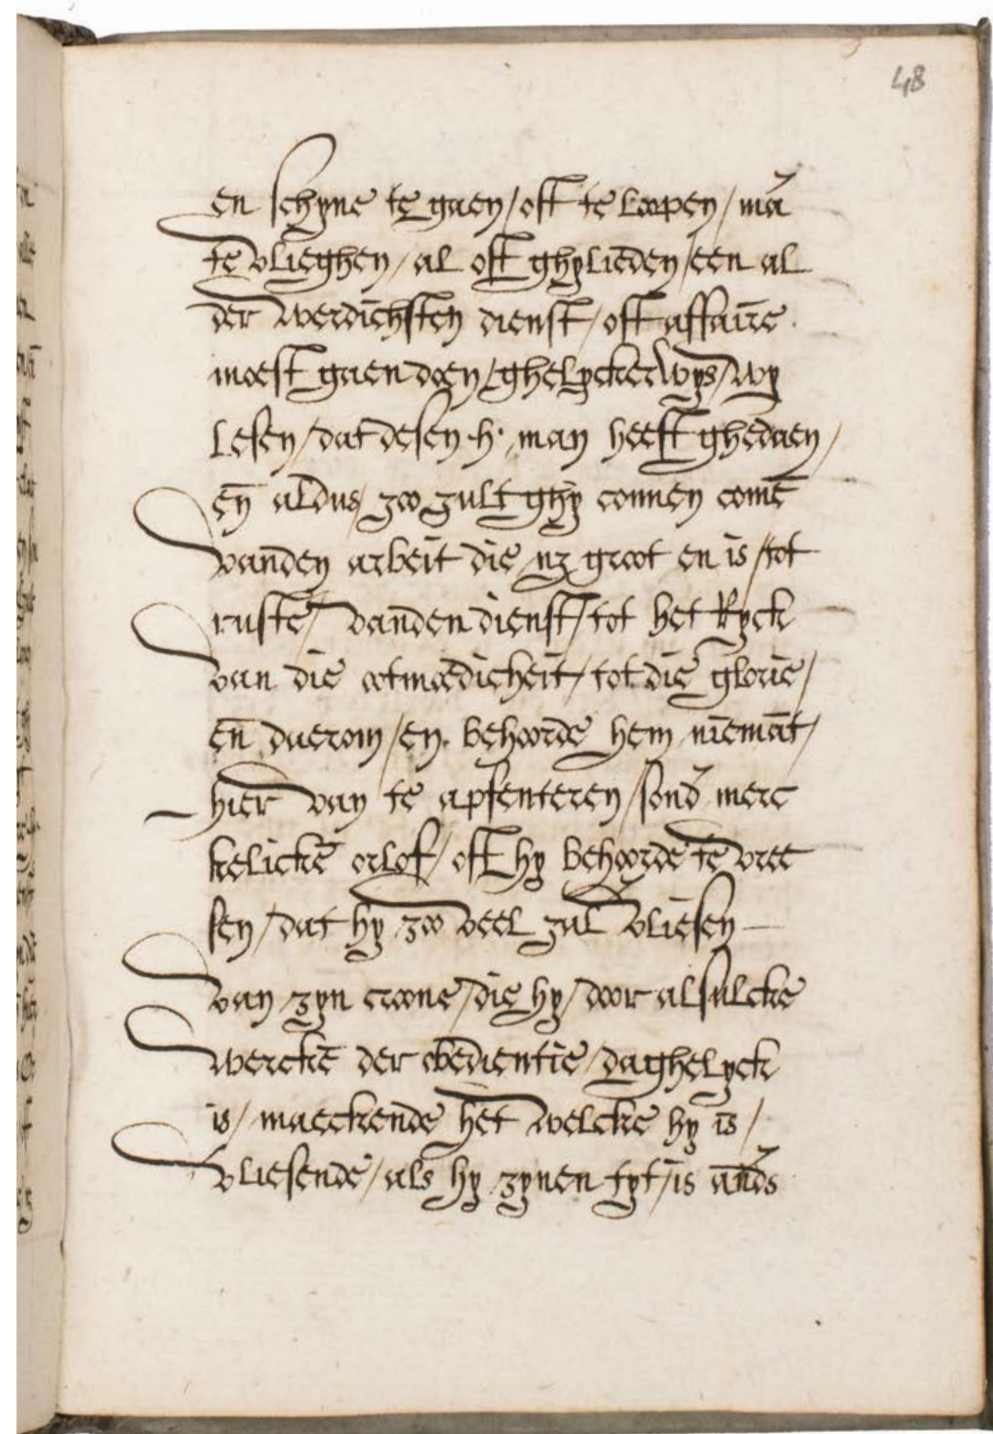 48
en schyne te gaen / oft te loopen / mā
te vlieghen / al oft ghylieden / een al
der werdichsten dienst / oft affairē
moest gaen doen / ghelyckerwys / wy
lesen / dat desen .h. man heeft ghedaen /
eñ aldus / zoo zult ghy connen comē
vanden arbeit die nz groot en is / tot
rustē / vanden dienst / tot het Ryck
van die ootmoedicheit / tot die glorie /
eñ daerom / en behoorde hem niemāt /
hier van te apsenteren / sond' merc
kelickē orlof / oft hy behoorde te vree
sen / dat hy zoo veel zal vliesen
van zyn croone / die hy / door alsulcke
werckē der obedientie / daghelyck
is / maeckende het welcke hy is /
vliesende / als hy zynen tyt / is and's